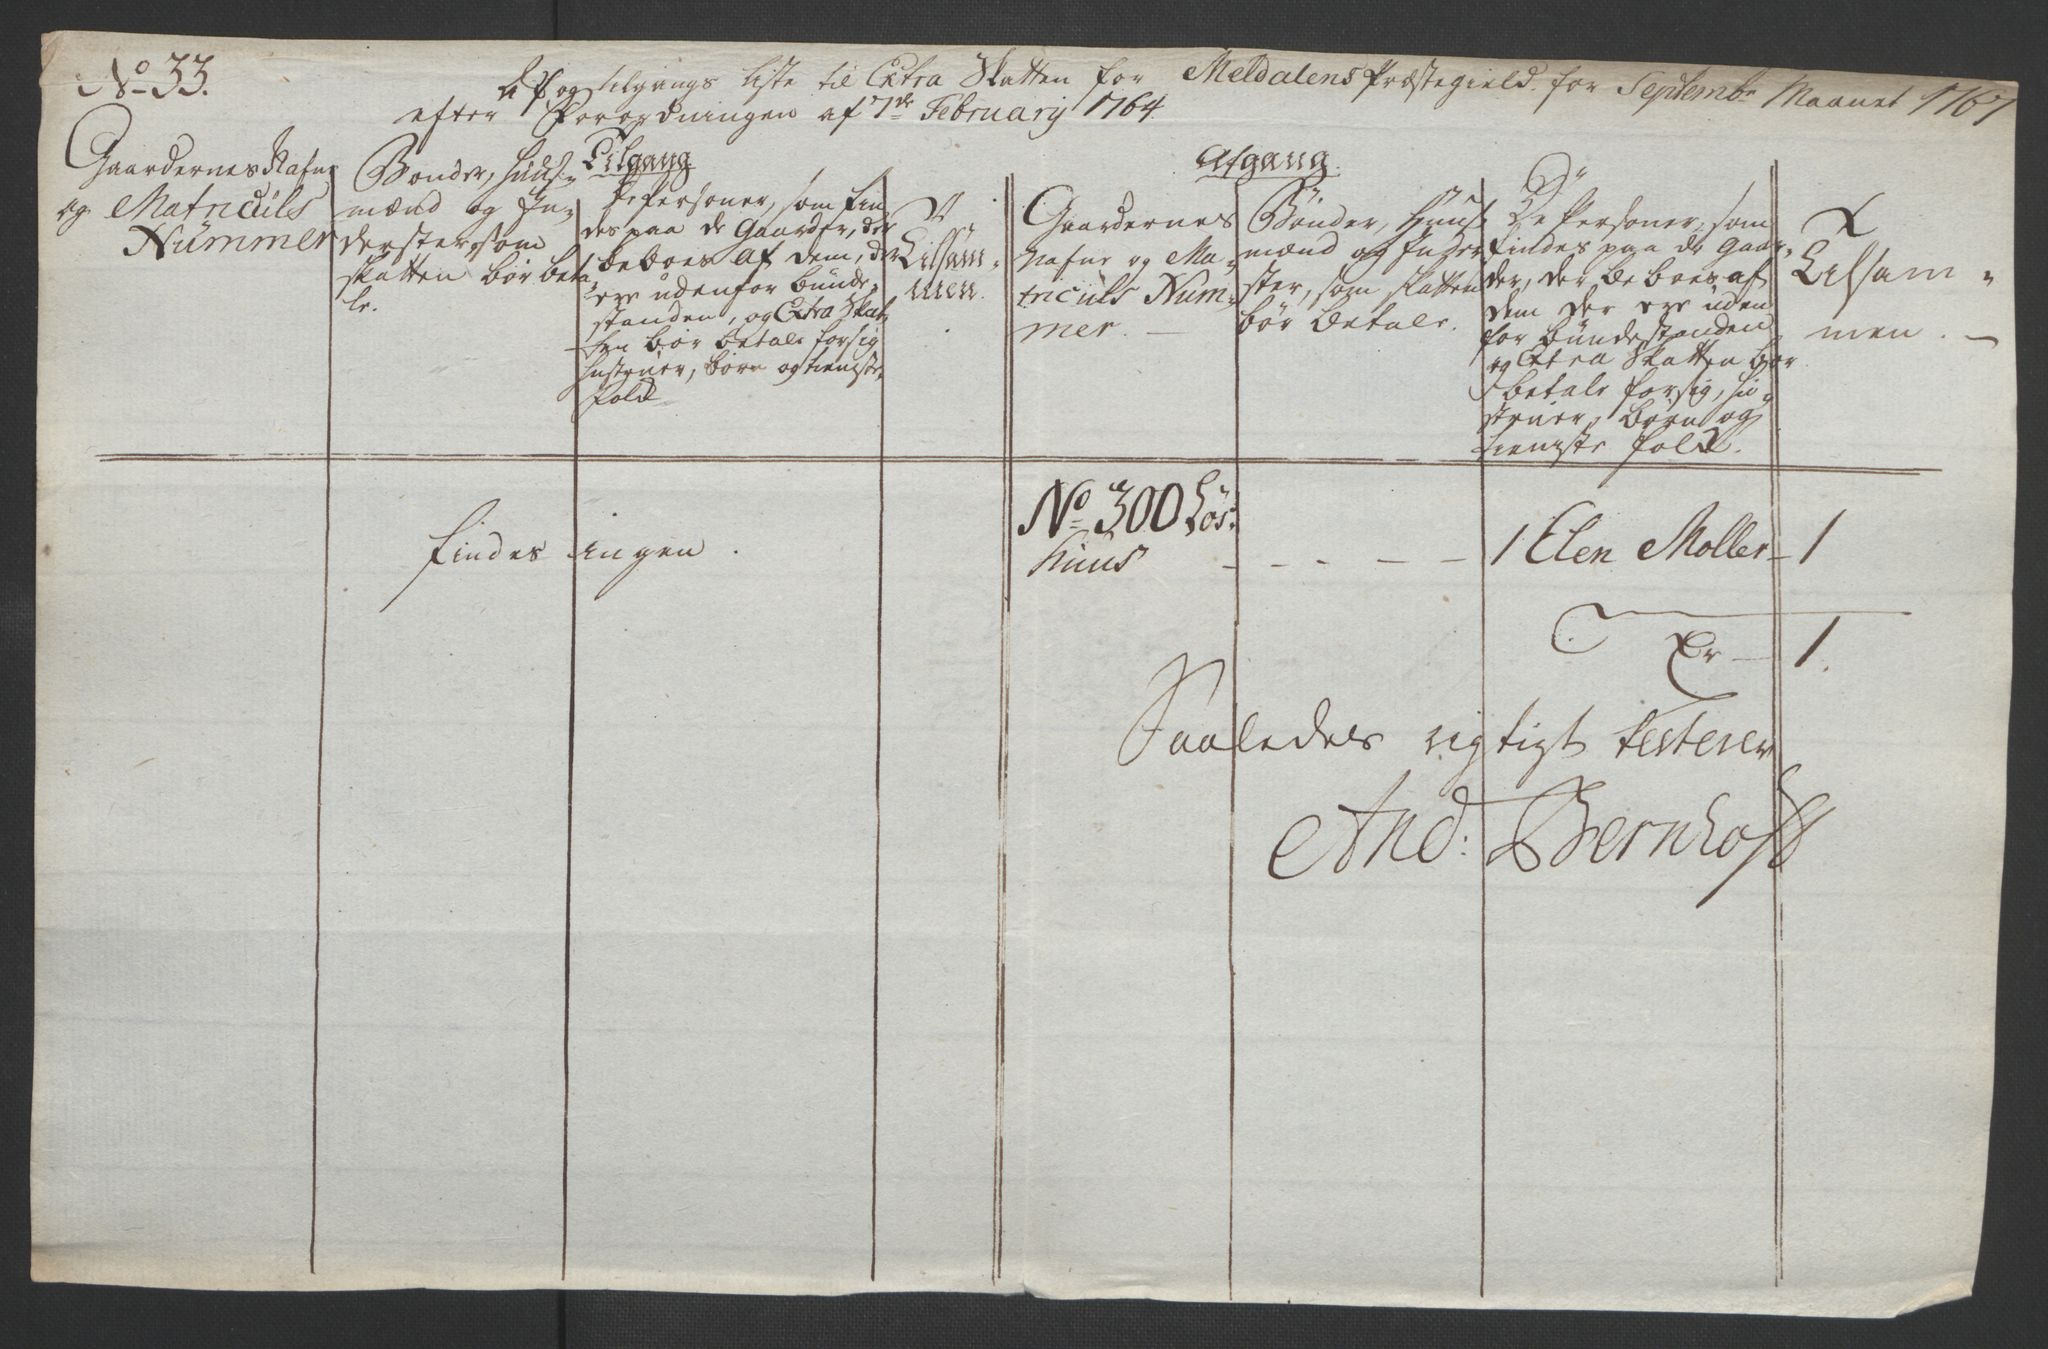 No 33.
Af og tilgangs Liste til Extra Skatten for Meldalens Præstegield for Septembr Maanet 1767
efter Forordningen af 7de February 1764
Tilgang
Gaardernes Nafne
og Matriculs
Nummer
Bønder, Huus-
mænd og In-
derster, som
skatten bør beta-
le.
De Personer, som fin
des paa de Gaarder, der
beboes af dem, der
ere udenfor bunde-
standen, og Extra Skat
ten bør betale for sig
hustruer, børn og tieniste
folk
Tilsam-
men.
Afgang
Gaardernes
Nafne og Ma-
triculs Num-
mer. —
Bønder, Huus
mænd og Inder
ster, som skatten
bør betale.
De Personer, som
findes paa de Gaar-
der, der beboes af
dem der ere uden
for bundestanden
og Extra Skatten bør
betale for sig, hu-
struer, børn og
tieniste folk.
Tilsam-
men. —
findes ingen.
No 300 Løs:
Huus - - - - - 1 Elen Moller - 1
Er — 1.
Saaledes rigtigt testerer
And: Bernhoft